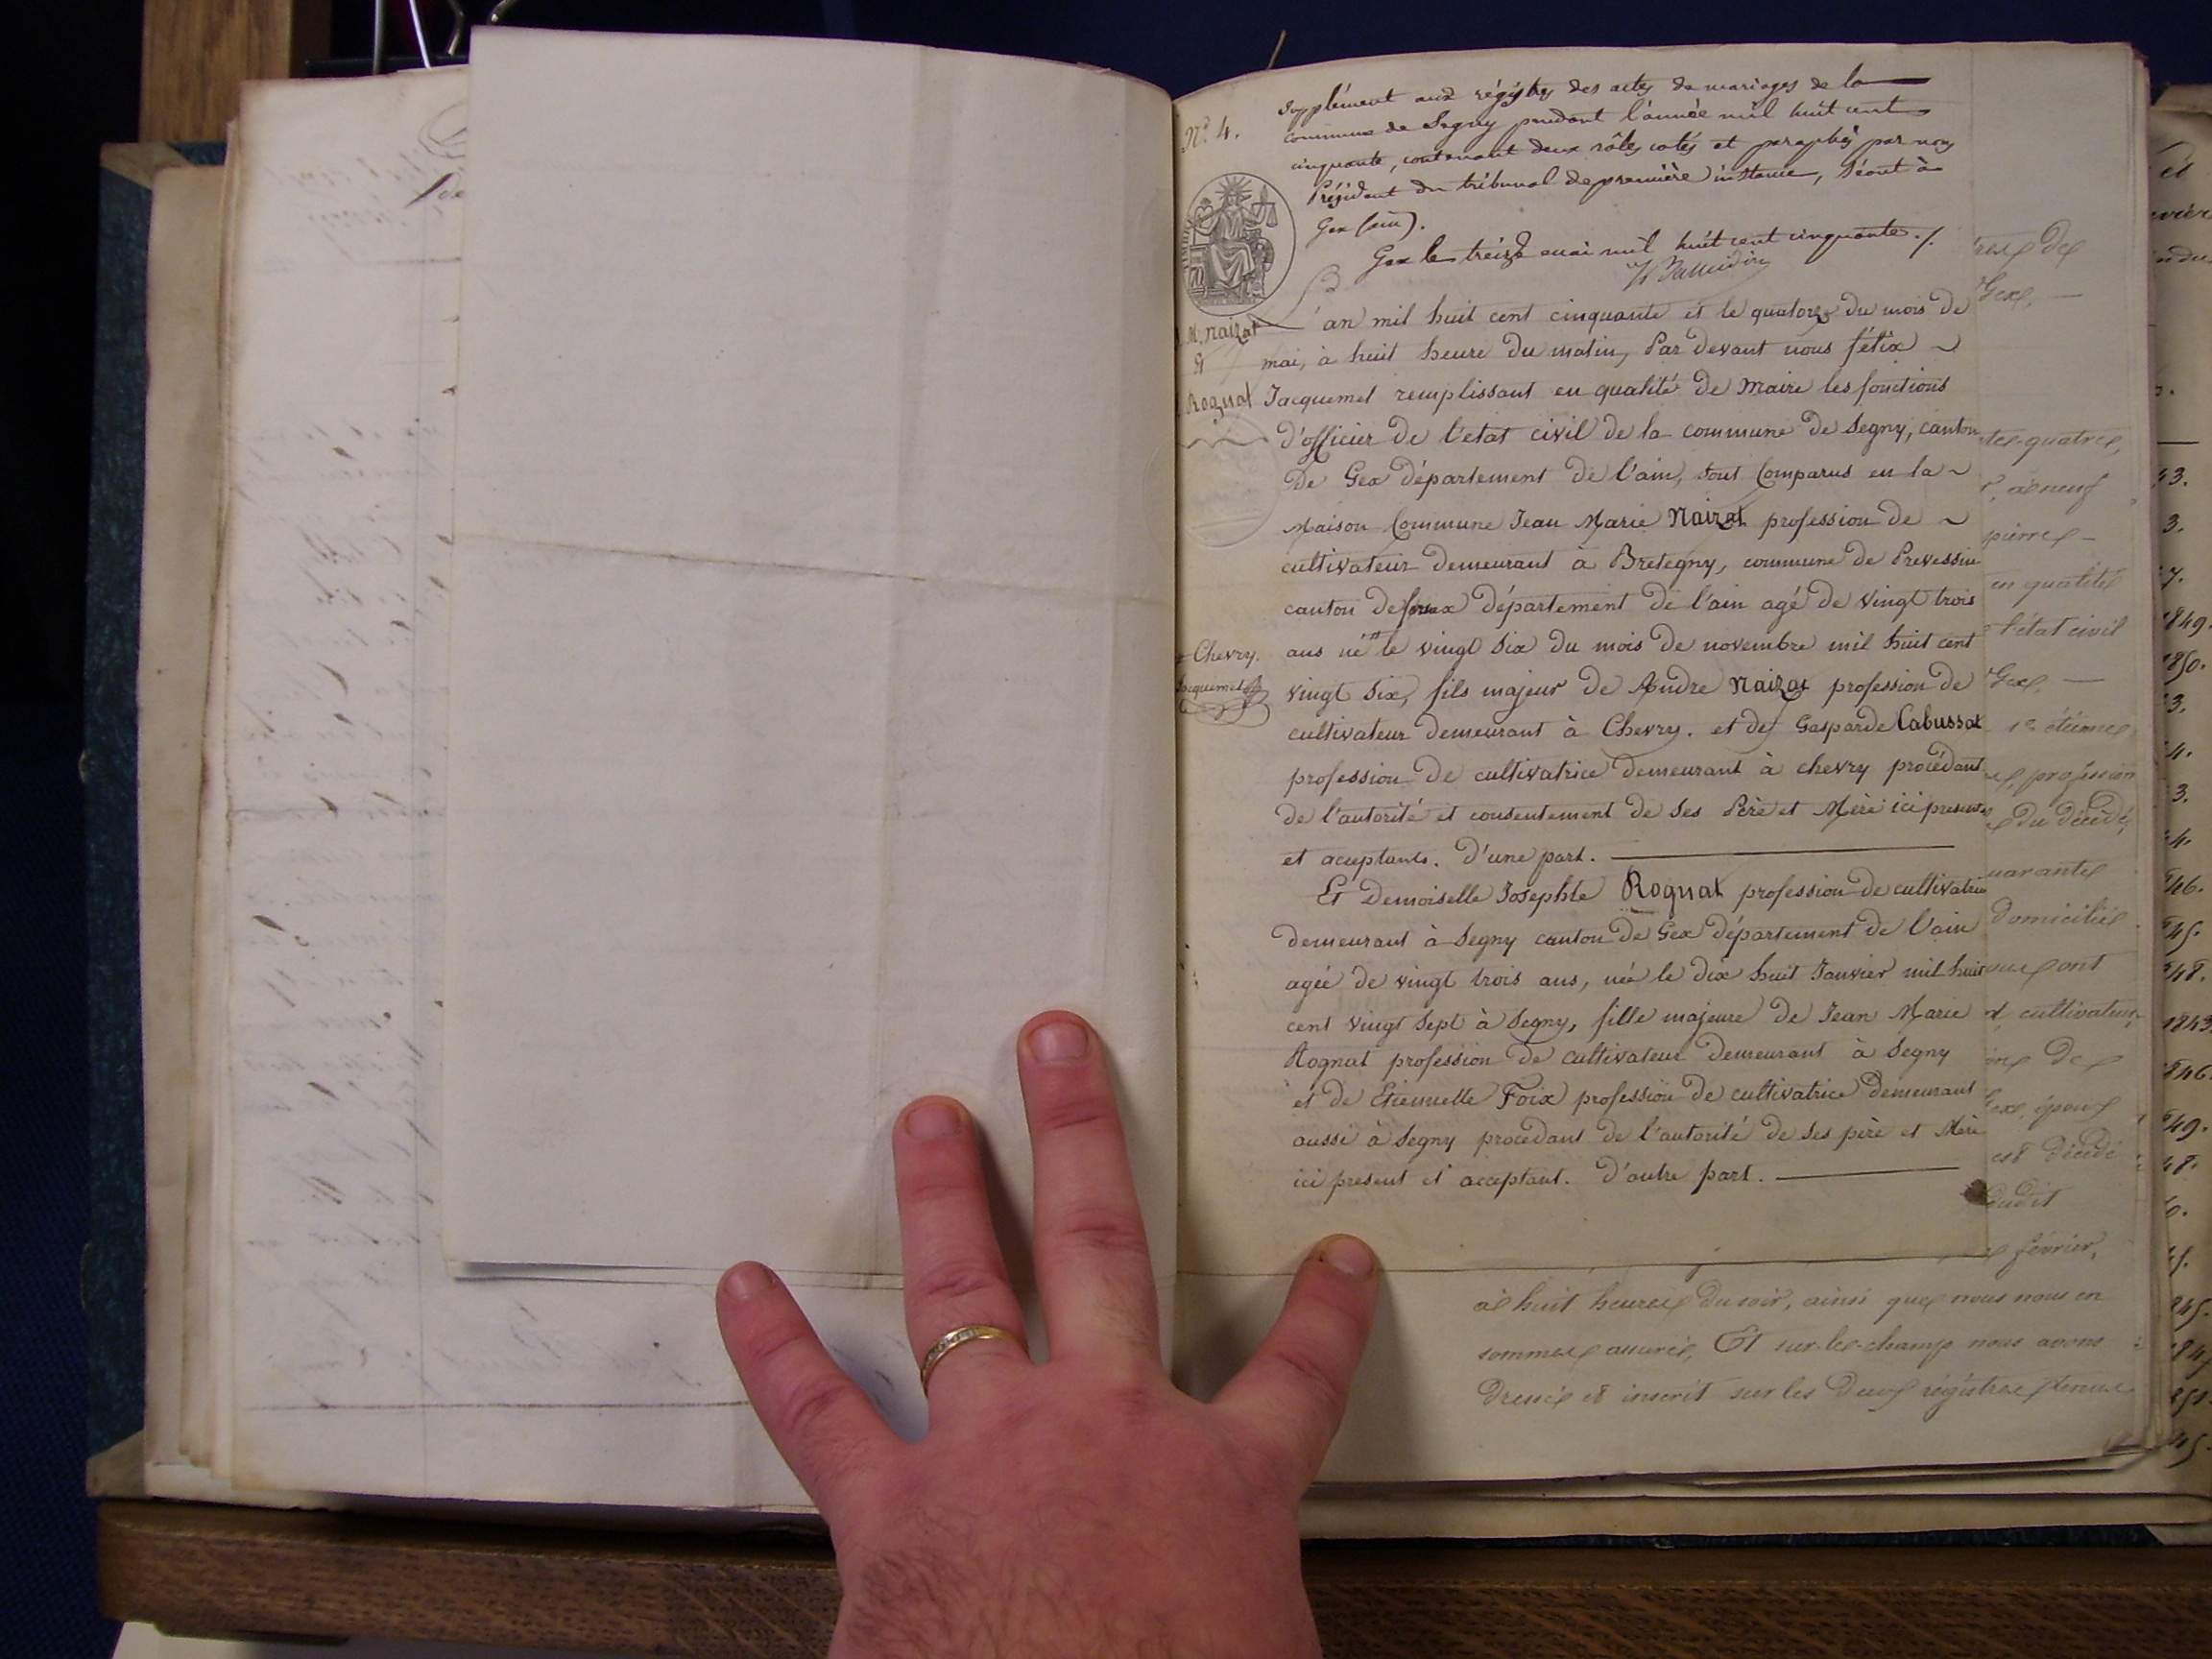 N° 4.
Supplément aux régistres des actes de mariages de la
commune de Segny pendant l'année mil huit cent
cinquante, contenant deux rôles cotés et paraphés par nous
Président du tribunal de première instance, séant à
Gex (ain).
Gex le treize mai mil huit cent cinquante ./.
L'an mil huit cent cinquante et le quatorze du mois de
mai, à huit heure du matin, Par devant nous félix
Jacquemet remplissant en qualité de Maire les fonctions
d'officier de l'etat civil de la commune de Segny, canton
De Gex département de l'ain, sont Comparus en la
Maison Commune Jean Marie Naizat profession de
cultivateur demeurant à Bretegny, commune de Prevessin
canton de département de l'ain agé de vingt trois
ans né # le vingt six du mois de novembre mil huit cent
vingt six, fils majeur de Andre Naizat profession de
cultivateur demeurant à Chevry. et de Gasparde Cabussat
profession de cultivatrice demeurant à chevry procédant
de l'autorité et consentement de ses Père et Mère ici presents
et acceptants. D'une part.
Et Demoiselle Josephte Rognat profession de cultivatrice
demeurant à Segny canton de Gex département de l'ain
agée de vingt trois ans, née le dix huit Janvier mil huit
cent vingt sept à Segny, fille majeure de Jean Marie
Rognat profession de cultivateur demeurant à Segny
et de Etiennette Foix profession de cultivatrice demeurant
aussi à Segny procédant de l'autorité de ses père et Mère
ici present et acceptant. D'autre part.
M. Naizat
et
Rognat
# Chevry.
Jacquemet
Gex.
tre-quatre,
à neuf
pierre
en qualité
l'état civil
Gex.
étienne
profession
du décédé,
quarante
domicilié
ont
cultivateur
de
Gex, époux
est décédé
dudit
février,
à huit heures du soir, ainsi que nous nous en
sommes assurés, Et sur-le-champ nous avons
dressé et inscrit sur les deux régistres tenus
43.
3.
7.
1849.
1850.
3.
4.
3.
44.
46.
45.
48.
1843
1846.
49.
48.